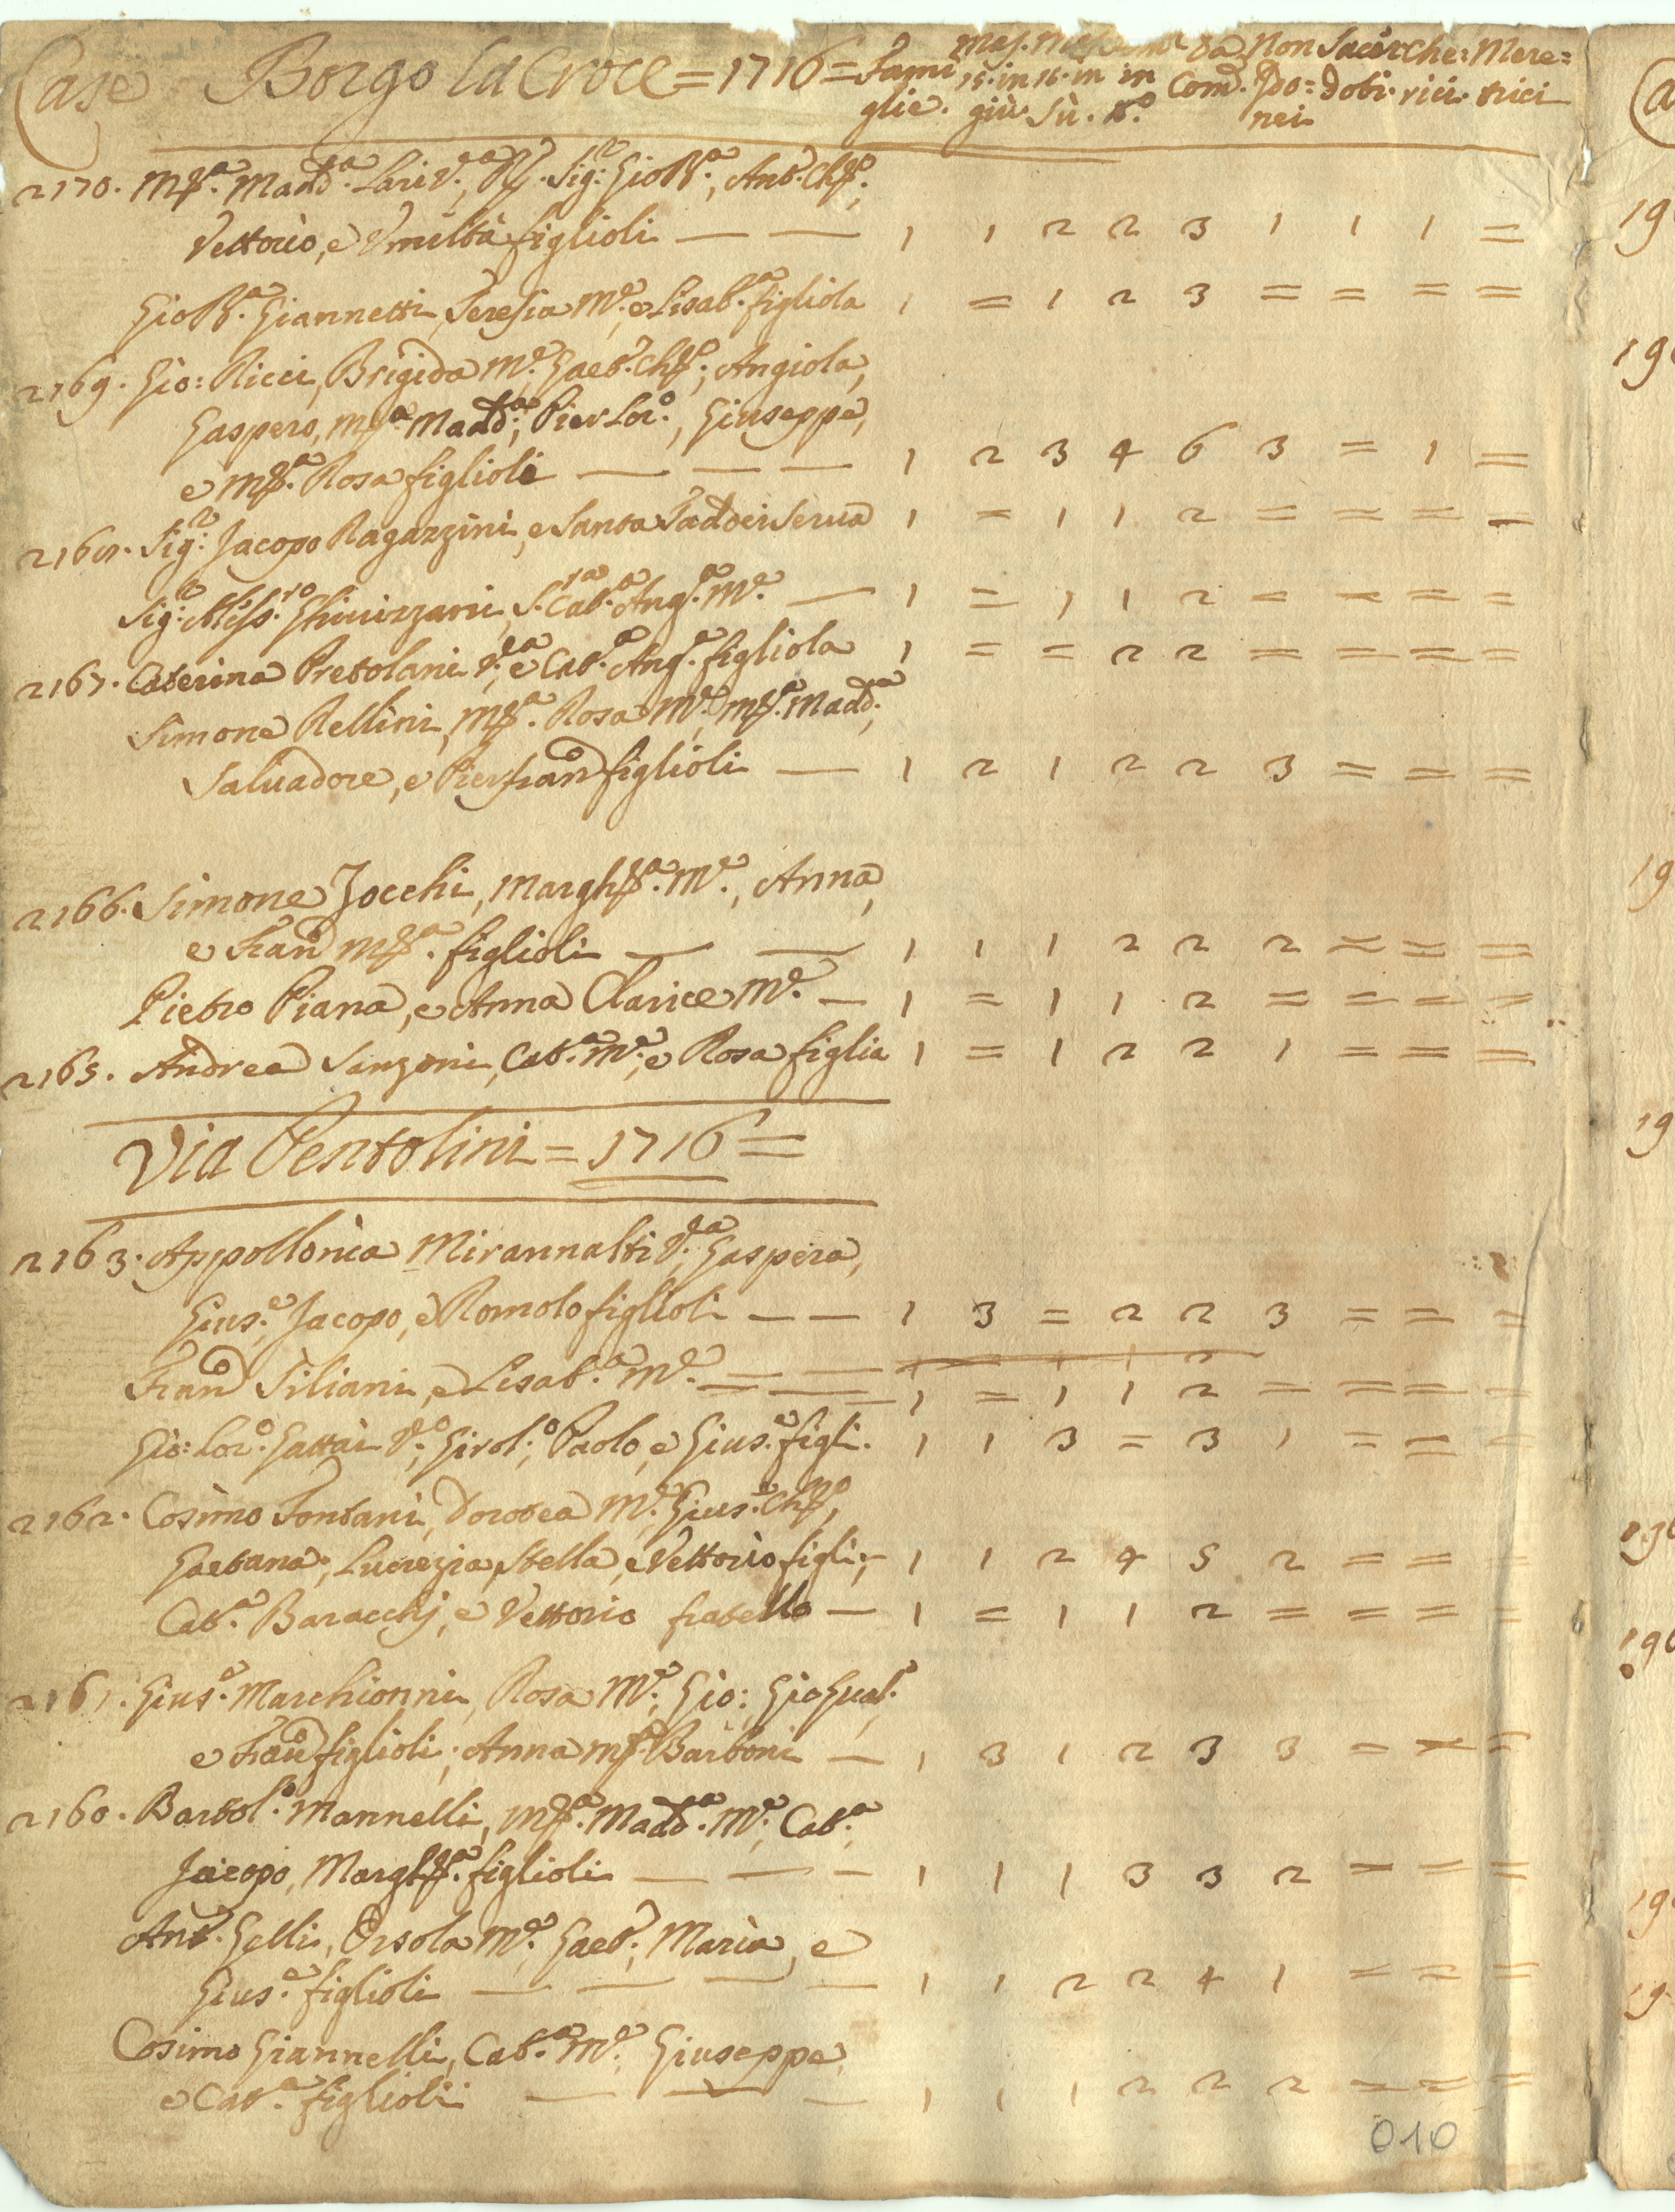 Case Borgo la Croce = 1716 = Fami glie. Mas. 15. in giù Mas. 16. in sù. in d.º da Com.º Non Idonei Sacerdoti. Cherici. Meretrici
2170. M.ª Madd.ª Lari V.ª, Sig.r Gio Bª., Ant.º
Vettorio, e Umiltà figlioli — — 1 1 2 2 3 1 1 1 =
Gio Bª. Giannetti, Teresia M.e, e Lisab.ª figliola 1 = 1 2 3 = = = =
2169. Gio: Ricci, Brigida M.e, Gaet.º, Angiola,
Gaspero, M.ª Madd.ª, Pier Lor.º, Giuseppe,
e M.ª Rosa figlioli — — — 1 2 3 4 6 3 = 1 =
2168. Sig.r Jacopo Ragazzini, e Santa Taddei Serva 1 = 1 1 2 = = = =
Sig.r S.ra Cat.ª Ang.ª M.e — 1 = 1 1 2 = = = =
2167. Caterina Pretolani V.ª, e Cat.ª Ang.ª figliola 1 = = 2 2 = = = =
Simone Rellini, M.ª Rosa M.e, M.ª Madd.ª,
Salvadore, e Pierfran.º figlioli — 1 2 1 2 2 3 = = =
2166. Simone Jocchi, Margh.ª M.e, Anna,
e Fran.º M.ª figlioli — — 1 1 1 2 2 2 = = =
Pietro Piana, e Anna Clarice M.e — 1 = 1 1 2 = = = =
2165. Andrea Sanzoni, Cat.ª M.e, e Rosa figlia 1 = 1 2 2 1 = = =
Via Pentolini = 1716 =
2163. Appollonia Mirannalti V.ª, Gaspera,
Gius.e, Jacopo, e Romolo figlioli — — 1 3 = 2 2 3 = = =
Fran.º Siliani, e Lisab.ª M.e = = = 1 = 1 1 2 = = = =
Gio: Lor.º Gattai V.º, Girol.º, Paolo, e Gius.e figli. 1 1 3 = 3 1 = = =
2162. Cosimo Fontani, Dorotea M.e, Gius.e
Gaetana, Lucrezia, Stella, e Vettorio figli; 1 1 2 4 5 2 = = =
Cat.ª Baracchj, e Vettorio fratello — 1 = 1 1 2 = = = =
2161. Gius.e Marchionni, Rosa M.e, Gio:, Gio Gual.º
e Fran.º figlioli; Anna M.ª Barboni — 1 3 1 2 3 3 = = =
2160. Bartol.º Mannelli, M.ª Madd.ª M.e, Cat.ª,
Jacopo, Margh.ª figlioli — — — 1 1 1 3 3 2 = = =
Ant.º Gelli, Orsola M.e, Gaet.º, Maria, e
Gius.e figlioli — — — — 1 1 2 2 4 1 = = =
Cosimo Giannelli, Cat.ª M.e, Giuseppe,
e Cat.ª figlioli — — — 1 1 1 2 2 2 = = =
010